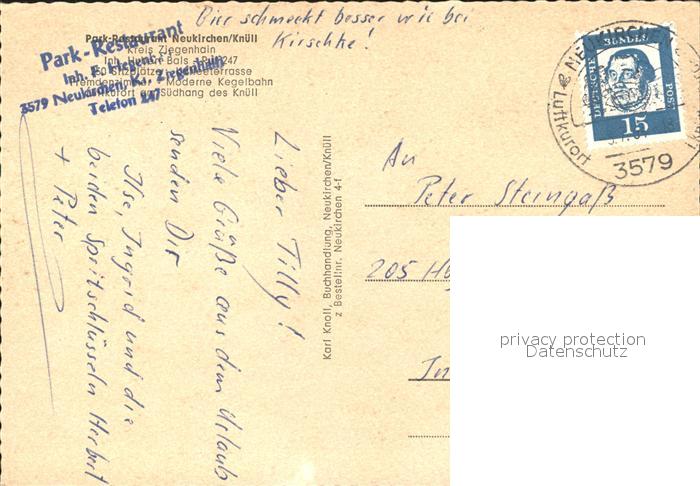 Bier schmeckt besser wie bei
Kirschke!
Park-Restaurant Neukirchen/Knüll
Kreis Ziegenhain
Inh. Hulran Bals · Ruf 247
Sitzplätze
Fremdenzimmer · Moderne Kegelbahn
Luftkurort am Südhang des Knüll
Park-Restaurant
3579 Neukirchen, Kr. Ziegenhain
Telefon 247
Lieber Tilly!
Viele Grüße aus dem Urlaub
senden Dir
Ilse, Ingrid und die
beiden Spritschlüsseln Herbert
+ Peter
Karl Knoll, Buchhandlung, Neukirchen/Knüll
z Bestellnr. Neukirchen 4-f
DEUTSCHE BUNDES POST
15
NEUKIRCHEN
Luftkurort
3579
An
Peter Steingaß
205 H
In
privacy protection
Datenschutz